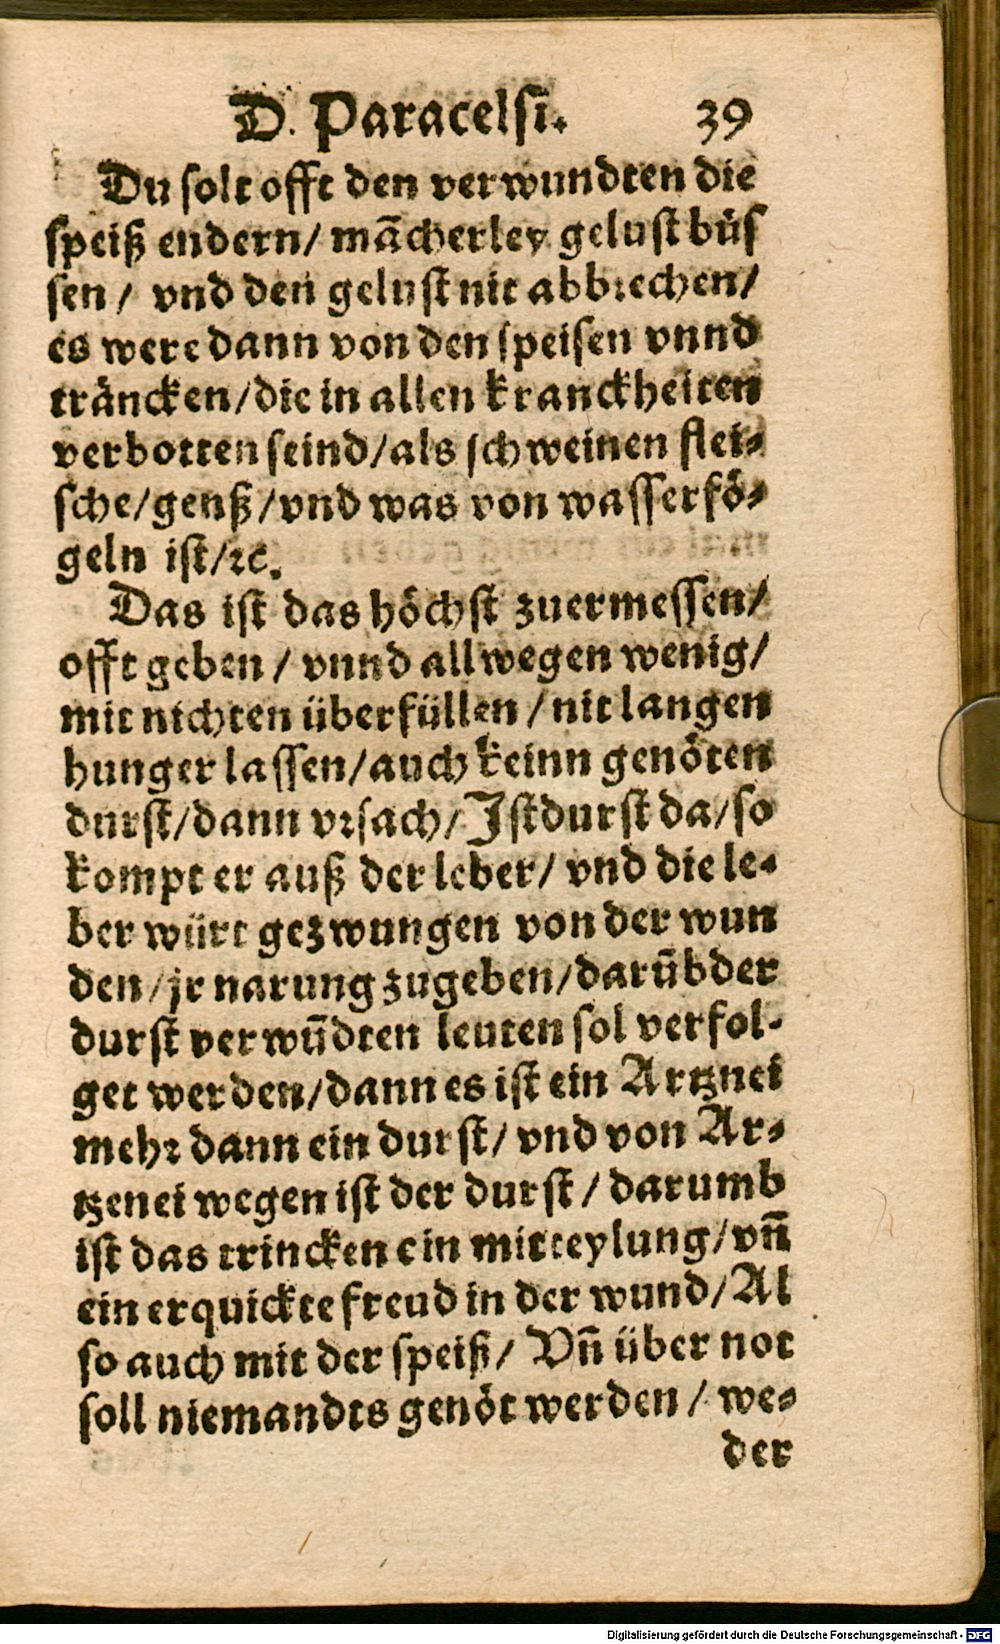 D. Paracelsi. 39
Du solt offt den verwundten die
speiß endern/ mãcherley gelust büs
sen/ vnd den gelust nit abbrechen/
es were dann von den speisen vnnd
träncken/die in allen kranckheiten
verbotten seind/als schweinen flei-
sche/genß/vnd was von wasserfö-
geln ist/ꝛc.
Das ist das höchst zuermessen/
offt geben/ vnnd allwegen wenig/
mit nichten überfüllen/nit langen
hunger lassen/auch keinn genöten
durst/dann vrsach/ Ist durst da/so
kompt er auß der leber/ vnd die le-
ber würt gezwungen von der wun
den/jr narung zugeben/darũb der
durst verwũdten leuten sol verfol-
get werden/dann es ist ein Artznei
mehr dann ein durst/ vnd von Ar-
tzenei wegen ist der durst/ darumb
ist das trincken ein mitteylung/vñ
ein erquickte freud in der wund/Al
so auch mit der speiß/ Vñ über not
soll niemandts genöt werden/ we-
der
Digitalisierung gefördert durch die Deutsche Forschungsgemeinschaft - DFG